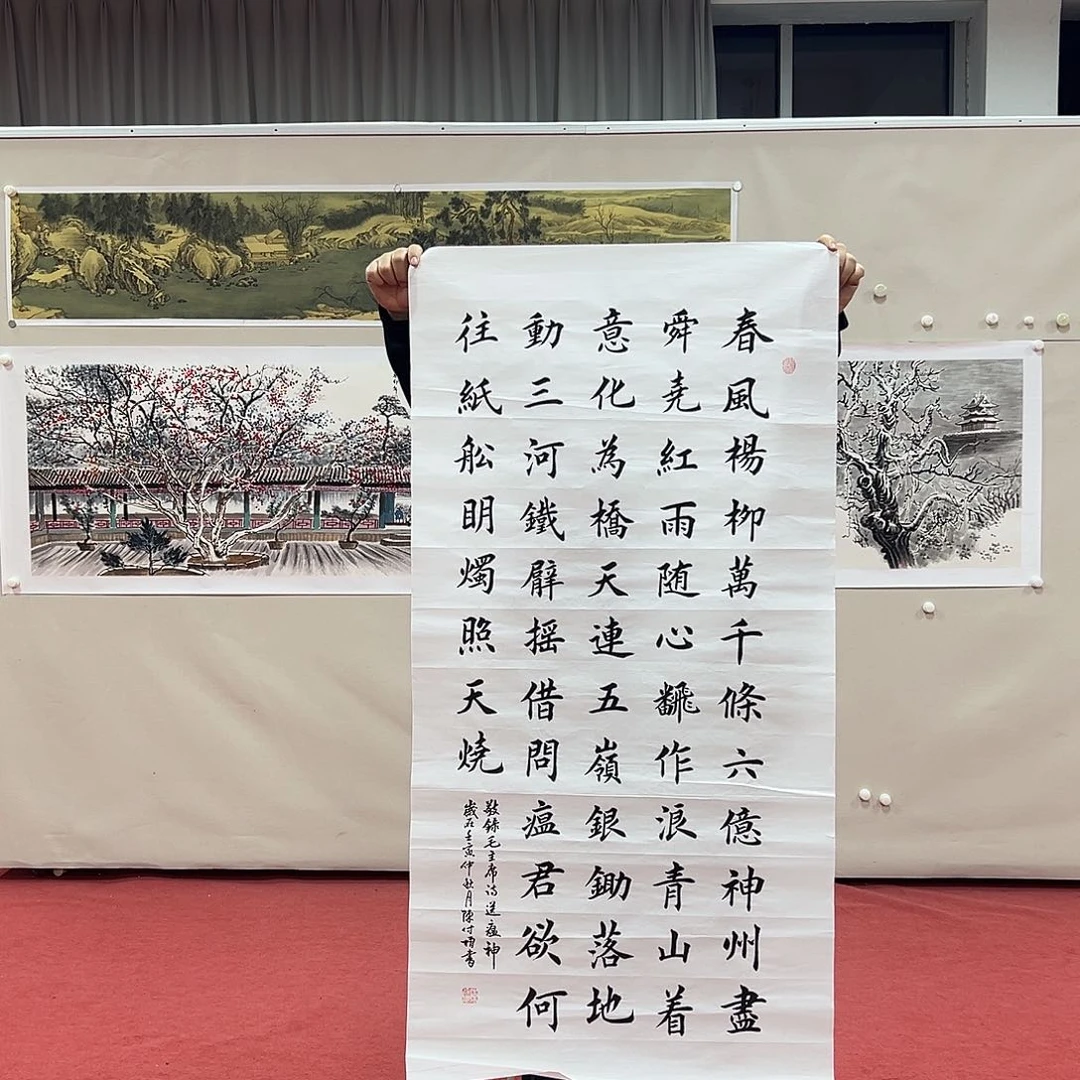 春風楊柳萬千條六億神州盡
舜堯紅雨随心飜作浪青山着
意化為橋天連五嶺銀鋤落地
動三河鐵臂摇借問瘟君欲何
往紙舩眀燭照天燒
敬錄毛主席詩送瘟神
歲在壬寅仲秋月陳付書